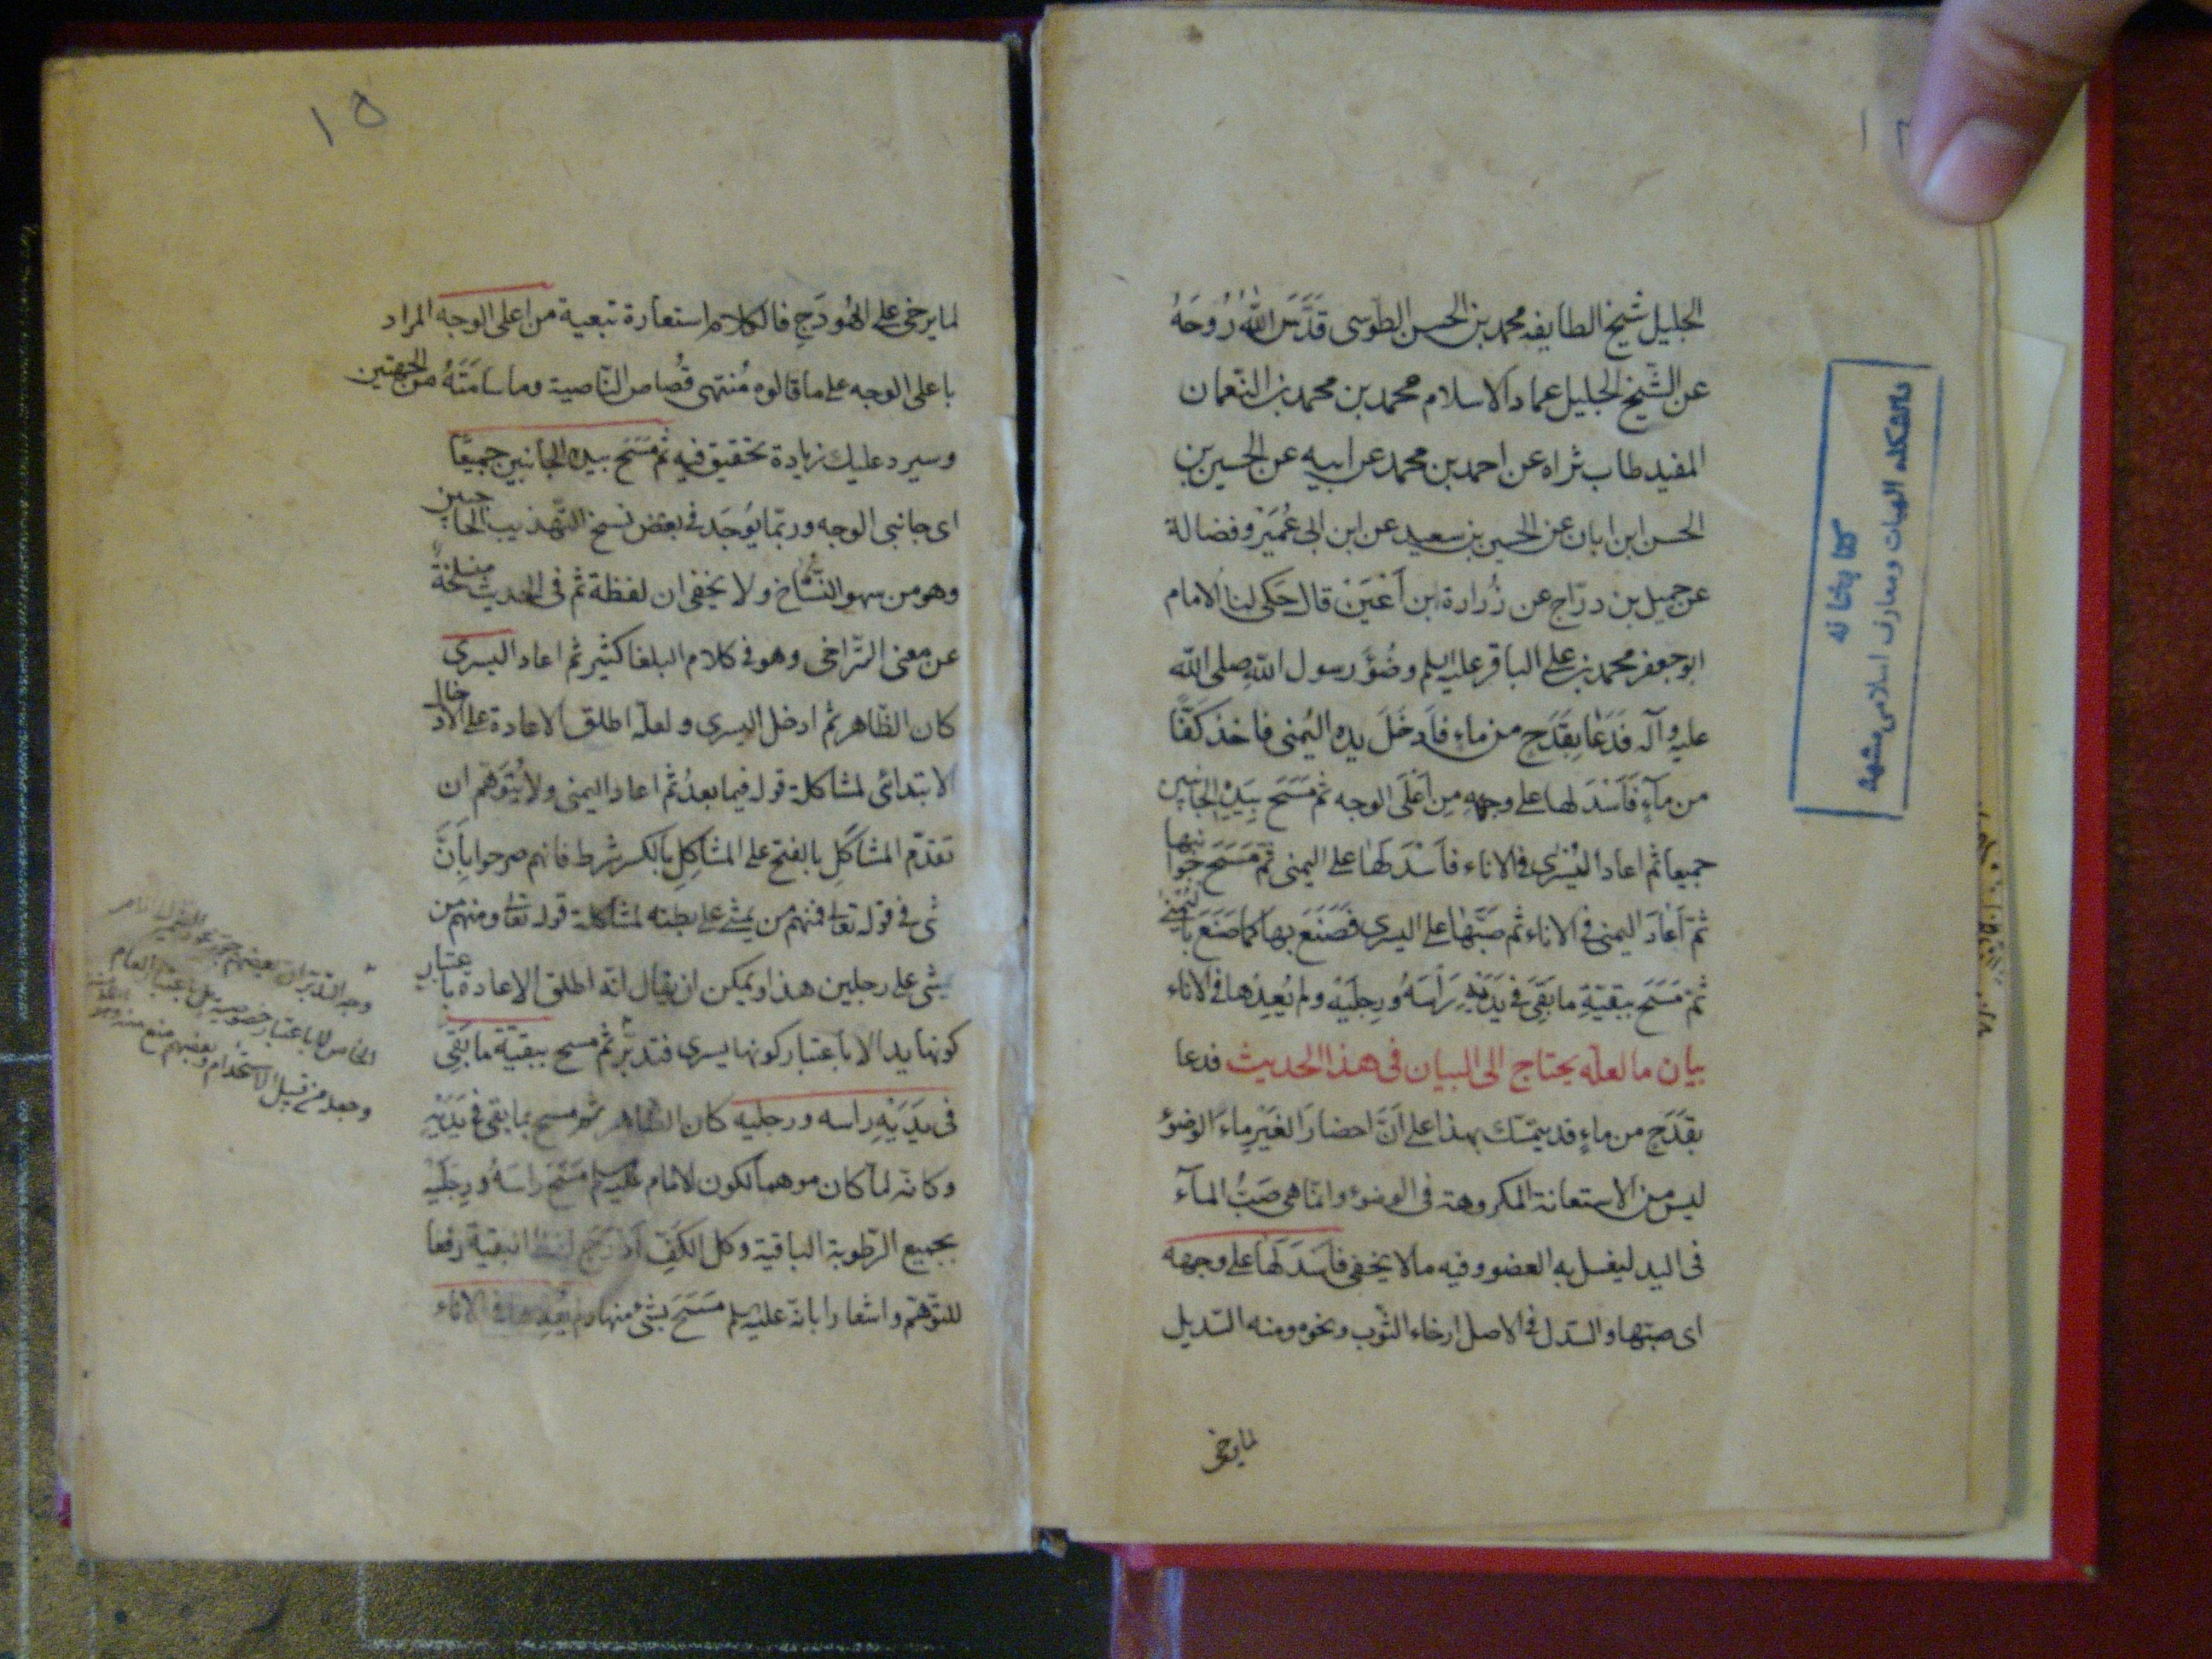 الجليل شيخ الطايفه محمد بن الحسن الطوسى قَدَّسَ اللهُ رُوحَهُ
عن الشيخ الجليل عماد الاسلام محمد بن محمد بن النعمان
المفيد طاب ثراه عن احمد بن محمد عن ابيه عن الحسين بن
الحسن ابن ابان عن الحسين بن سعيد عن ابن ابى عُمَيْر وفضالة
عن جميل بن درّاج عن زُرارة ابن اَعْيَنْ قال حَكى لنا الامام
ابو جعفر محمد بن على الباقر عليه السلم وضُؤَ رسول اللهِ صلى الله
عليه وآله فَدَعَا بِقَدَحٍ من ماءٍ فاَدخَلَ يده اليُمنى فاخذ كَفًّا
من مآءٍ فَاَسْدَلها على وجهِهِ مِن اَعْلَى الوجه ثمّ مَسَحَ بِيَدِهِ الجانبين
جميعاً ثم اعاد اليُسْرى فى الاناء فاَسْدَلَهٰا على اليمنى ثمّ مَسَحَ جوانبها
ثمّ اَعَادَ اليمنى فى الاناء ثم صَبَّهٰا على اليسرى فَصَنَعَ بها كما صَنَعَ باليُمْنى
ثمّ مَسَحَ ببقيّةِ ما بَقِىَ فى يَدَيْهِ رَاْسَهُ ورِجلَيْه ولم يُعِدْها فى الاناء
بيان ما لعلّه يحتاج الى البيان فى هذا الحديث فدعا
بقَدَحٍ من ماءٍ قد يتمسّك بهذا على اَنَّ احضارَ الغَيْرِ ماءَ الوضؤ
ليس من الاستعانة المكروهة فى الوضوء وانّما هى صَبُّ المآء
فى اليد ليغسل به العضو وفيه ما لا يخفى فاَسْدَلَهٰا على وجهه
اى صبّها والسّدل فى الاصل ارخاء الثّوب ونحوه ومنه السّديل
لما يرخى
دانشكده الهيات ومعارف اسلامى مشهد
كتابخانه
١٥
لما يرخى على الهُودَجِ فالكلام استعارة تبعية من اعلى الوجه المراد
باعلى الوجه على ما قالوه مُنتهى قُصاص النّاصية وما سامَتَهُ من الجهتين
وسيرد عليك زيادة تحقيق فيه ثمّ مَسَحَ بيده الجانبين جميعًا
اى جانبى الوجه وربّما يُوجَد فى بعض نسخ التّهذيب الحاجبين
وهو من سهو النُّسّاخ ولا يخفى ان لفظة ثم فى الحديث منسلخةٌ
عن معنى التّراخى وهو فى كلام البلغا كثير ثم اعاد اليسرى
كان الظّاهر ثم ادخل اليسرى ولعلّه اطلق الاعادة على الادخال
الابتدائى لمشاكلة قوله فيما بعدُ ثم اعاد اليمنى ولا يُتَوَهّم ان
تقدّم المشاكَلِ بالفتح على المشاكِلِ بالكسر شرط فانهم صرحوا بِاَنَّ
يمشى فى قوله تعالى فمنهم من يمشى على بطنه لمشاكلة قوله تعالى ومنهم من
يمشى على رجلين هذا ويمكن ان يقال انّه اطلق الاعادة باعتبار
كونها يدا لا باعتبار كونها يسرى فتدبّر ثمّ مسح ببقيّة ما بَقِى
فى يَدَيْهِ راسه ورجليه كان الظاهر ثم مسح بما بقى فى يَدَيْهِ
وكانّه لمّا كان موهماً لكون الامام عليه السلم مَسَحَ راسَهُ ورِجلَيْهِ
بجميع الرّطوبة الباقية وكل الكَفِّ اَدْرَجَ لفظ البقية رفعا
للتّوهّم واشعارا بانّه عليه السلم مَسَحَ بشىٔ منها ولم يُعِدها فى الاناء
الخاص لا باعتبار خصوصيته بل باعتبار العام